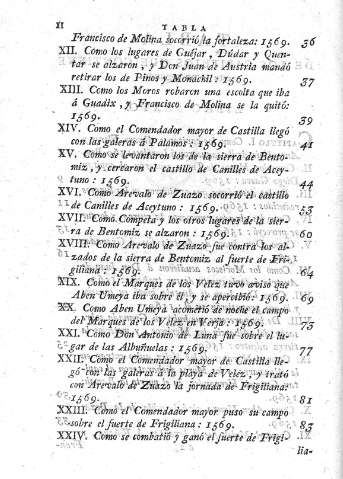 II TABLA
Francisco de Molina socorrió la fortaleza: 1569. 36
XII. Como los lugares de Guéjar, Dúdar y Quen-
tar se alzaron, y Don Juan de Austria mandó
retirar los de Pinos y Monachil: 1569. 37
XIII. Como los Moros robaron una escolta que iba
á Guadix, y Francisco de Molina se la quitó:
1569. 39
XIV. Como el Comendador mayor de Castilla llegó
con las galeras á Palamos: 1569. 41
XV. Como se levantaron los de la sierra de Bento-
miz, y cercaron el castillo de Canilles de Acey-
tuno: 1569. 44
XVI. Como Arevalo de Zuazo socorrió el castillo
de Canilles de Aceytuno: 1569. 53
XVII. Como Competa y los otros lugares de la sier-
ra de Bentomiz se alzaron: 1569. 60
XVIII. Como Arevalo de Zuazo fue contra los al-
zados de la sierra de Bentomiz al fuerte de Fri-
giliana: 1569. 64
XIX. Como el Marques de los Velez tuvo aviso que
Aben Umeya iba sobre él, y se apercibió: 1569. 69
XX. Como Aben Umeya acometió de noche el campo
del Marques de los Velez en Verja: 1569. 73
XXI. Como Don Antonio de Luna fue sobre el lu-
gar de las Albuñuelas: 1569. 77
XXII. Como el Comendador mayor de Castilla lle-
gó con las galeras á la playa de Velez, y trató
con Arevalo de Zuazo la jornada de Frigiliana:
1569. 81
XXIII. Como el Comendador mayor puso su campo
sobre el fuerte de Frigiliana: 1569. 83
XXIV. Como se combatió y ganó el fuerte de Frigi-
lia-